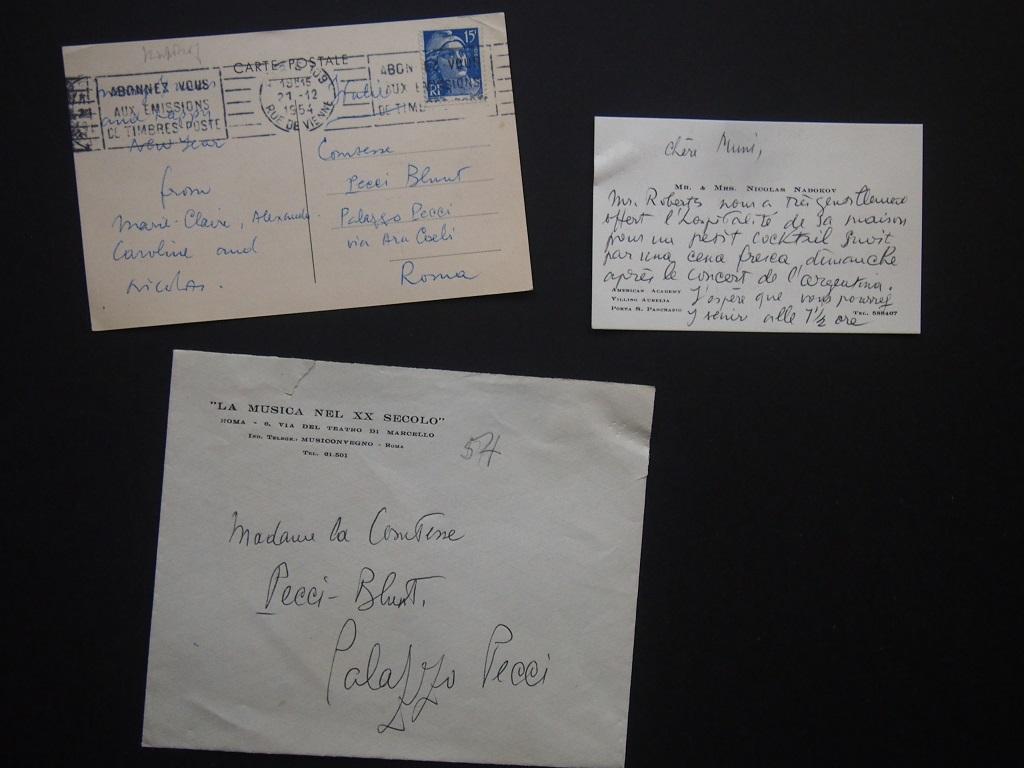 CARTE POSTALE
ABONNEZ VOUS
AUX EMISSIONS
DE TIMBRES-POSTE
18H15
21-12
1954
RUE DE VIENNE
ABON EZ VOUS
AUX EMISSIONS
DE TIMB
15F
RF
and Happy
New Year
from
Marie-Claire, Alexandre
Caroline and
Nicolas.
Italie
Comtesse
Pecci Blunt
Palazzo Pecci
via Ara Coeli
Roma
Chère Mimi,
Mr. & Mrs. Nicolas Nabokov
Mr. Roberts nous a très gentillement
offert l'hospitalité de sa maison
pour un petit cocktail suivit
par una cena fresca, dimanche
après le concert de l'argentina.
J'espère que vous pourrez
y venir alle 7½ ore
American Academy
Villino Aurelia
Porta S. Pancrazio
Tel. 588407
"LA MUSICA NEL XX SECOLO"
ROMA - 6, VIA DEL TEATRO DI MARCELLO
Ind. Telegr.: MUSICONVEGNO - Roma
Tel. 61.501
54
Madame la Comtesse
Pecci-Blunt,
Palazzo Pecci